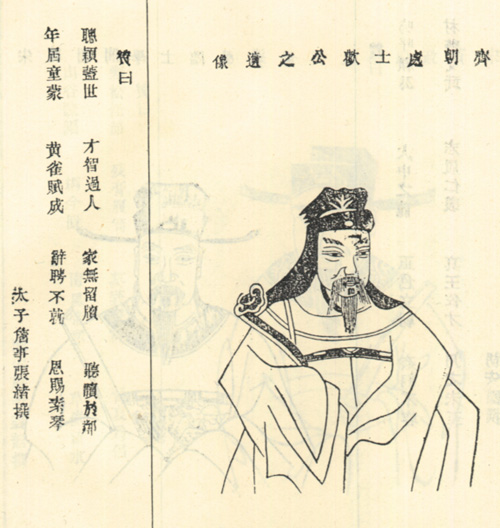 齊朝處士歡公之遺像
贊曰
聰穎蓋世 才智過人 家無留 聽讀於鄰
年屆童蒙 黄雀賦成 辭聘不就 恩賜素琴
太子詹事張緒撰